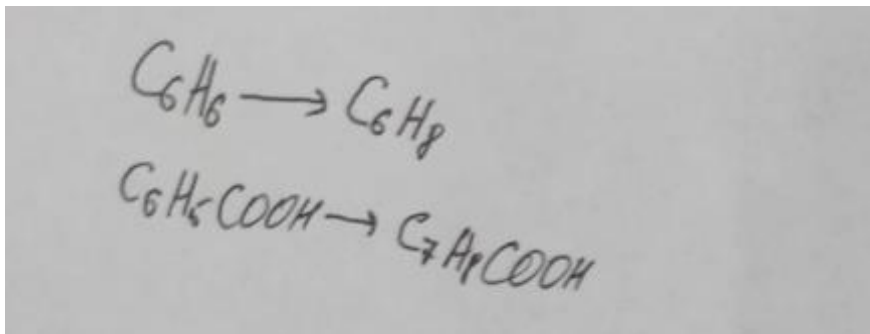 C₆H₆ → C₆H₈
C₆H₅COOH → C₇H₈COOH